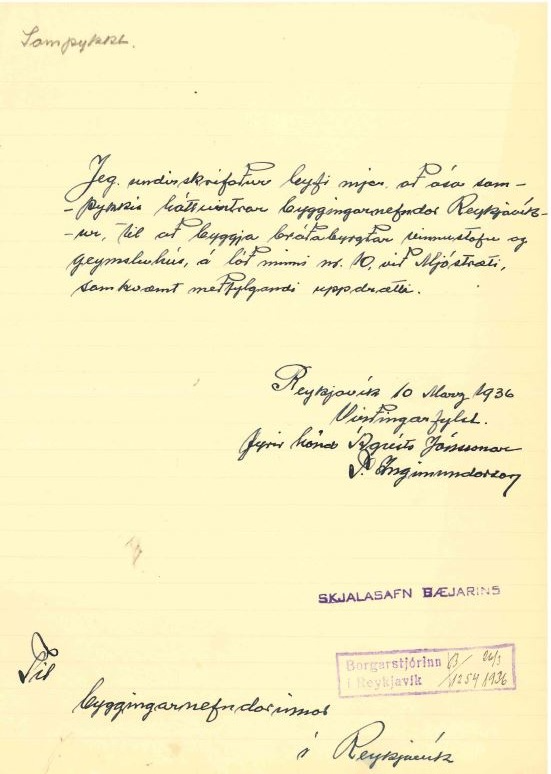 Samþykkt.
Jeg undirskrifaður leyfi mjer að æskja sam-
-þykkis háttvirtrar byggingarnefndar Reykjavík-
-ur, til að byggja bráðabyrgðar vinnustofu og
geymsluhús, á lóð minni nr. 10, við Mjóstræti,
samkvæmt meðfylgjandi uppdrætti.
Reykjavík 10 Marz 1936
Virðingarfylst.
fyrir hönd Ágústs Jónssonar
P. Ingimundarson
SKJALASAFN BÆJARINS
Borgarstjórinn B/ 26/3
í Reykjavík /1254 1936
Til
byggingarnefndarinnar
í Reykjavík